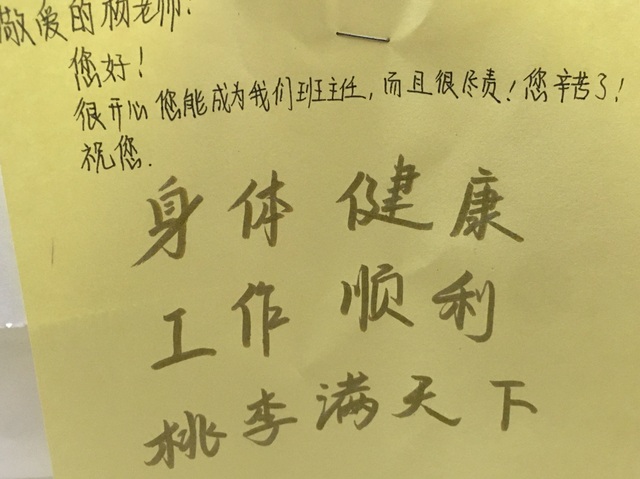 敬爱的杨老师:
您好!
很开心您能成为我们班主任,而且很尽责!您辛苦了!
祝您.
身体健康
工作顺利
桃李满天下